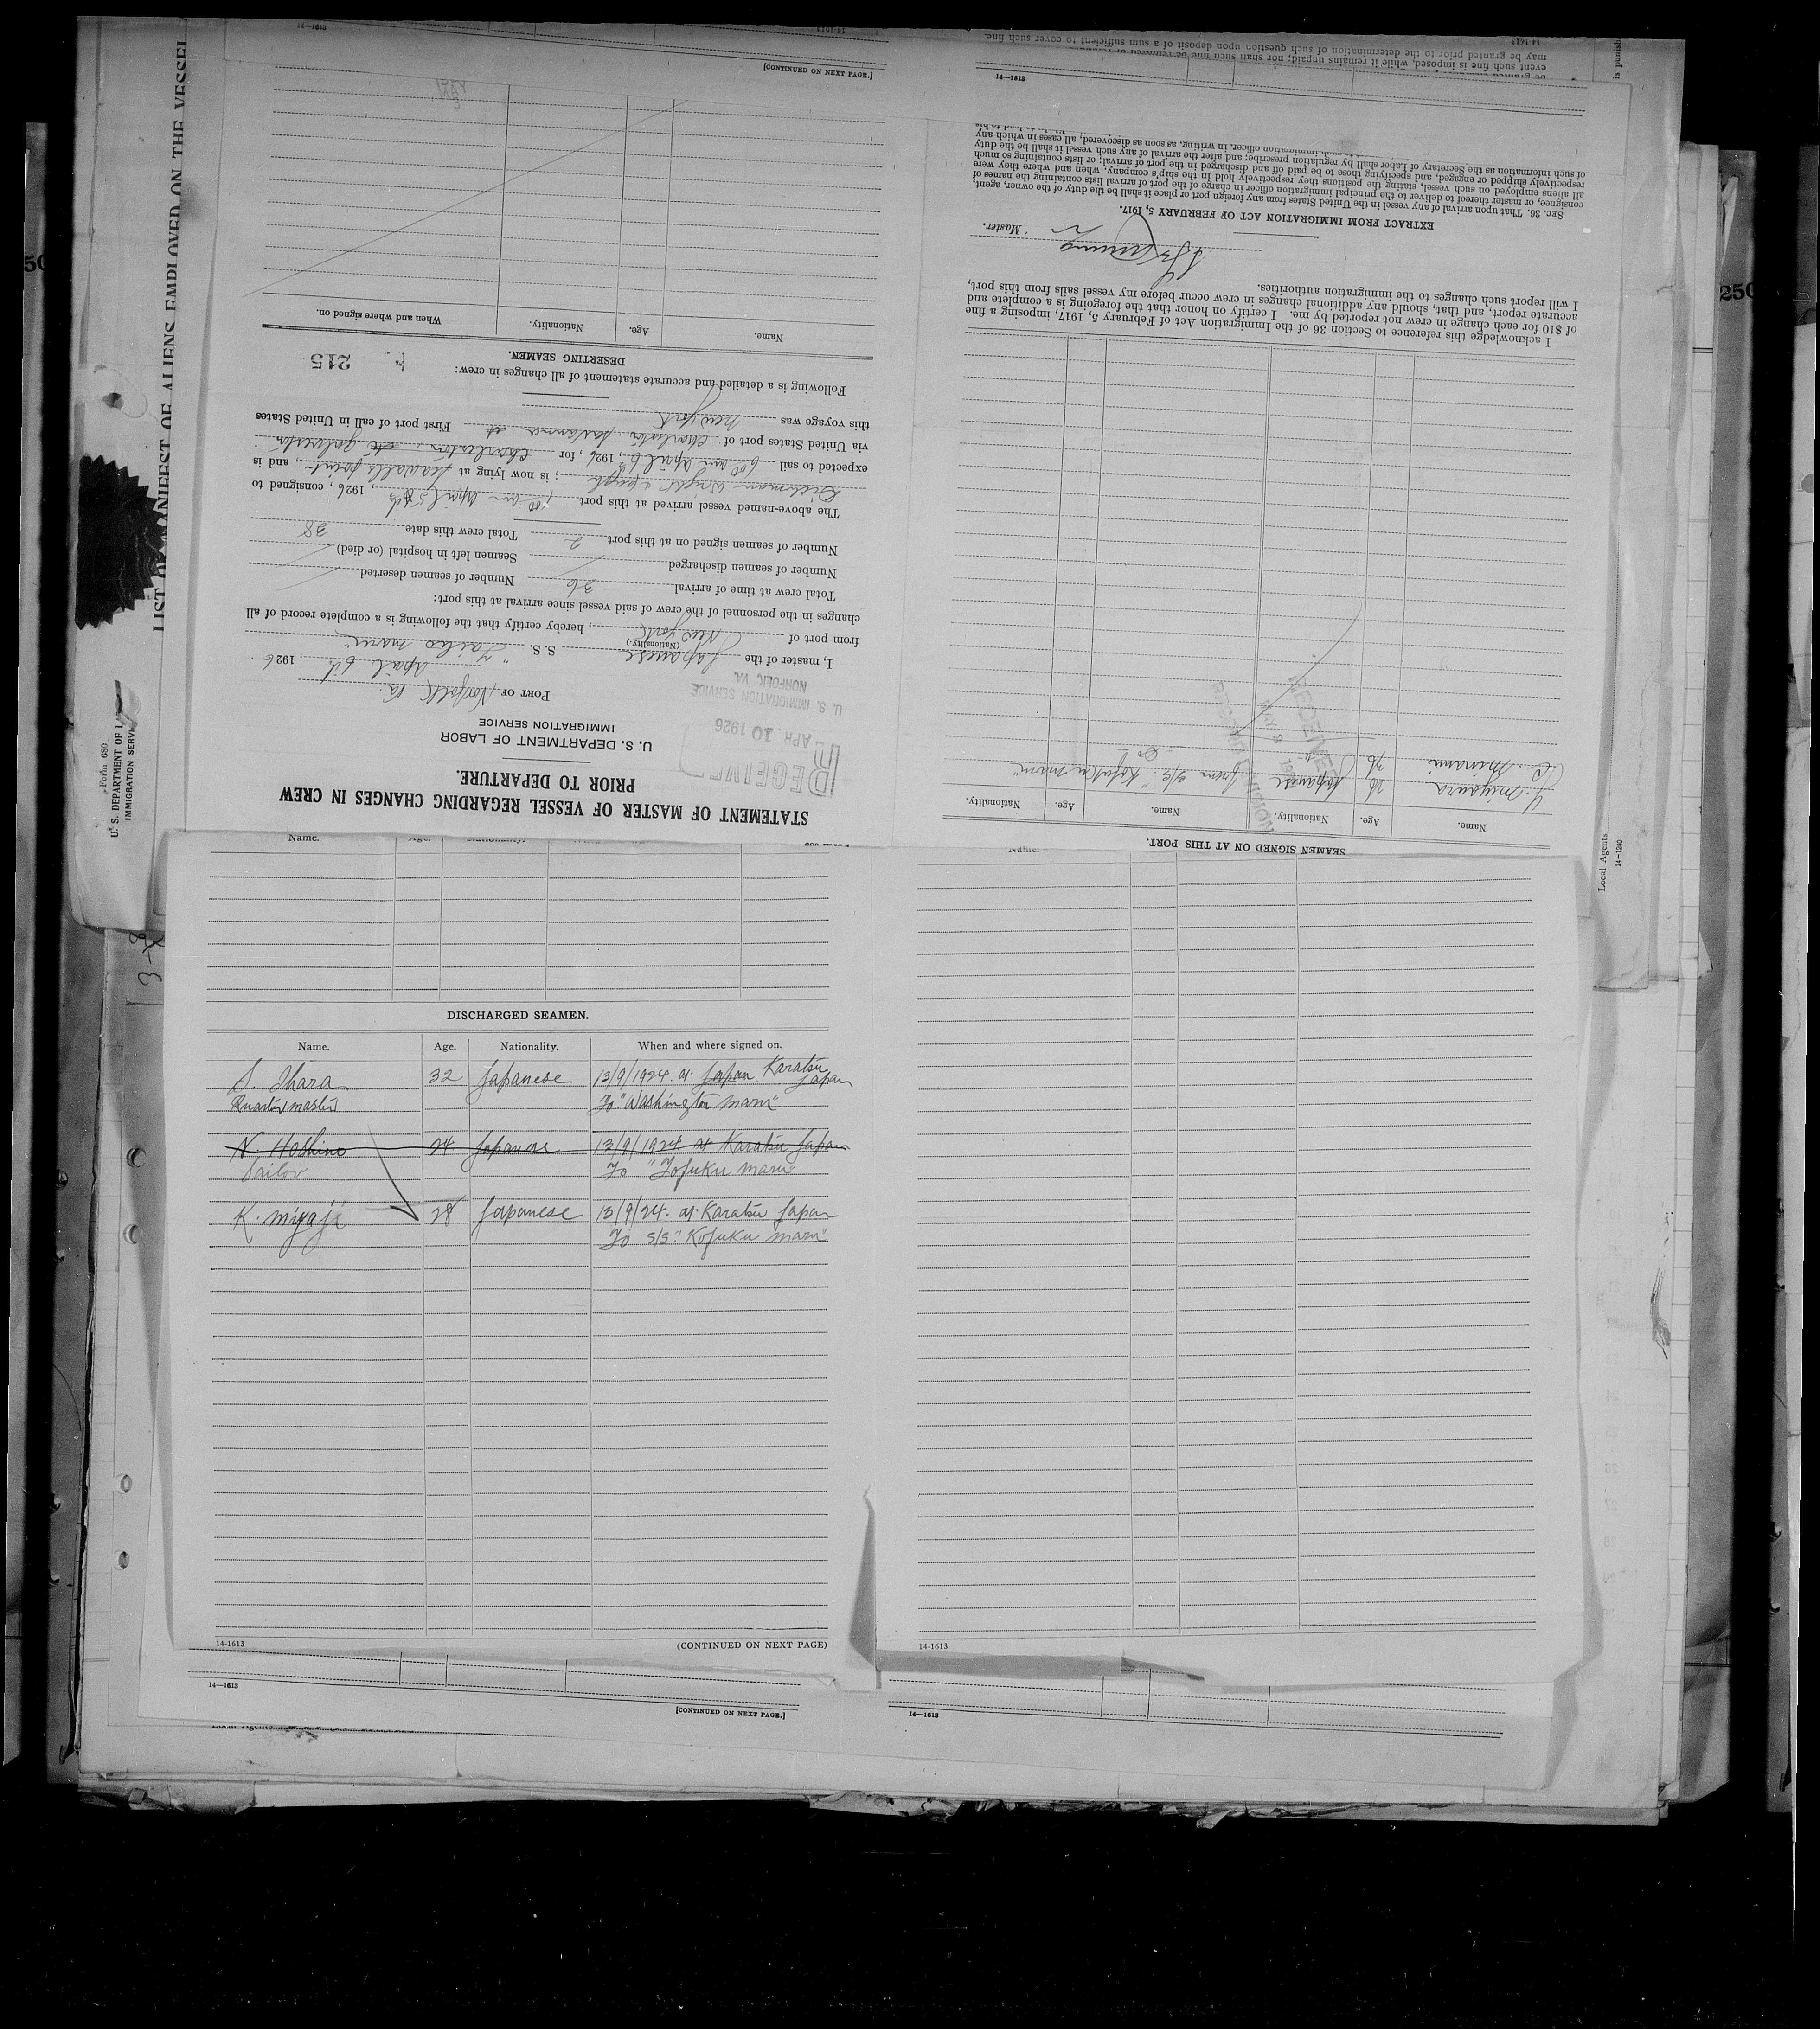 LIST OF MANIFEST OF ALIENS EMPLOYED ON THE VESSEL
Form 680
U. S. DEPARTMENT OF
IMMIGRATION SERVICE
Local Agents
14—1240
250
STATEMENT OF MASTER OF VESSEL REGARDING CHANGES IN CREW
PRIOR TO DEPARTURE.
U. S. DEPARTMENT OF LABOR
IMMIGRATION SERVICE
RECEIVED
APR 10 1926
U. S. IMMIGRATION SERVICE
NORFOLK, VA.
PORT OF Norfolk Va.
April 6th 1926
I, master of the Japanese S. S. maru"
(Nationality)
from port of New York, hereby certify that the following is a complete record of all
changes in the personnel of the crew of said vessel since arrival at this port:
Total crew at time of arrival 36 Number of seamen deserted
Number of seamen discharged Seamen left in hospital (or died)
Number of seamen signed on at this port 2 Total crew this date 38
The above-named vessel arrived at this port April 5th, 1926, consigned to
; is now lying at Sewalls point, and is
expected to sail April 6th, 1926, for Charleston Galveston
via United States port of Charleston First port of call in United States
this voyage was New York
Following is a detailed and accurate statement of all changes in crew:
215
DESERTING SEAMEN.
Name. Age. Nationality. When and where signed on.
MAY
3
[CONTINUED ON NEXT PAGE.]
14—1613
SEAMEN SIGNED ON AT THIS PORT.
Name. Age. Nationality. Name. Age. Nationality.
Y. Miyaura 26 Japanese from s/s "Kofuku maru"
Minami 26 Do
RECEIVED
I acknowledge this reference to Section 36 of the Immigration Act of February 5, 1917, imposing a fine
of $10 for each change in crew not reported by me. I certify on honor that the foregoing is a complete and
accurate report, and that, should any additional changes in crew occur before my vessel sails from this port,
I will report such changes to the immigration authorities.
Master.
EXTRACT FROM IMMIGRATION ACT OF FEBRUARY 5, 1917.
SEC. 36. That upon arrival of any vessel in the United States from any foreign port or place it shall be the duty of the owner, agent,
consignee, or master thereof to deliver to the principal immigration officer in charge of the port of arrival lists containing the names of
all aliens employed on such vessel, stating the positions they respectively hold in the ship's company, when and where they were
respectively shipped or engaged, and specifying those to be paid off and discharged in the port of arrival; or lists containing so much
of such information as the Secretary of Labor shall by regulation prescribe; and after the arrival of any such vessel it shall be the duty
immigration officer, in writing, as soon as discovered, all cases in which any
14—1613
event such fine is imposed, while it remains unpaid; nor shall such fine be
may be granted prior to the determination of such question upon deposit of a sum sufficient to cover such fine.
14—1613
Name.
DISCHARGED SEAMEN.
Name. Age. Nationality. When and where signed on.
S. Ihara 32 Japanese 13/9/1924. at Japan Karatsu Japan
Quarter master To "Washington maru"
N Hoshino 24 Japanese 13/9/1924 at Karatsu Japan
Sailor To "Tofuku maru"
K. Miyaji 28 Japanese 13/9/24. at Karatsu Japan
To s/s "Kofuku maru"
14-1613
(CONTINUED ON NEXT PAGE)
14-1613
14—1613
[CONTINUED ON NEXT PAGE.]
14—1613